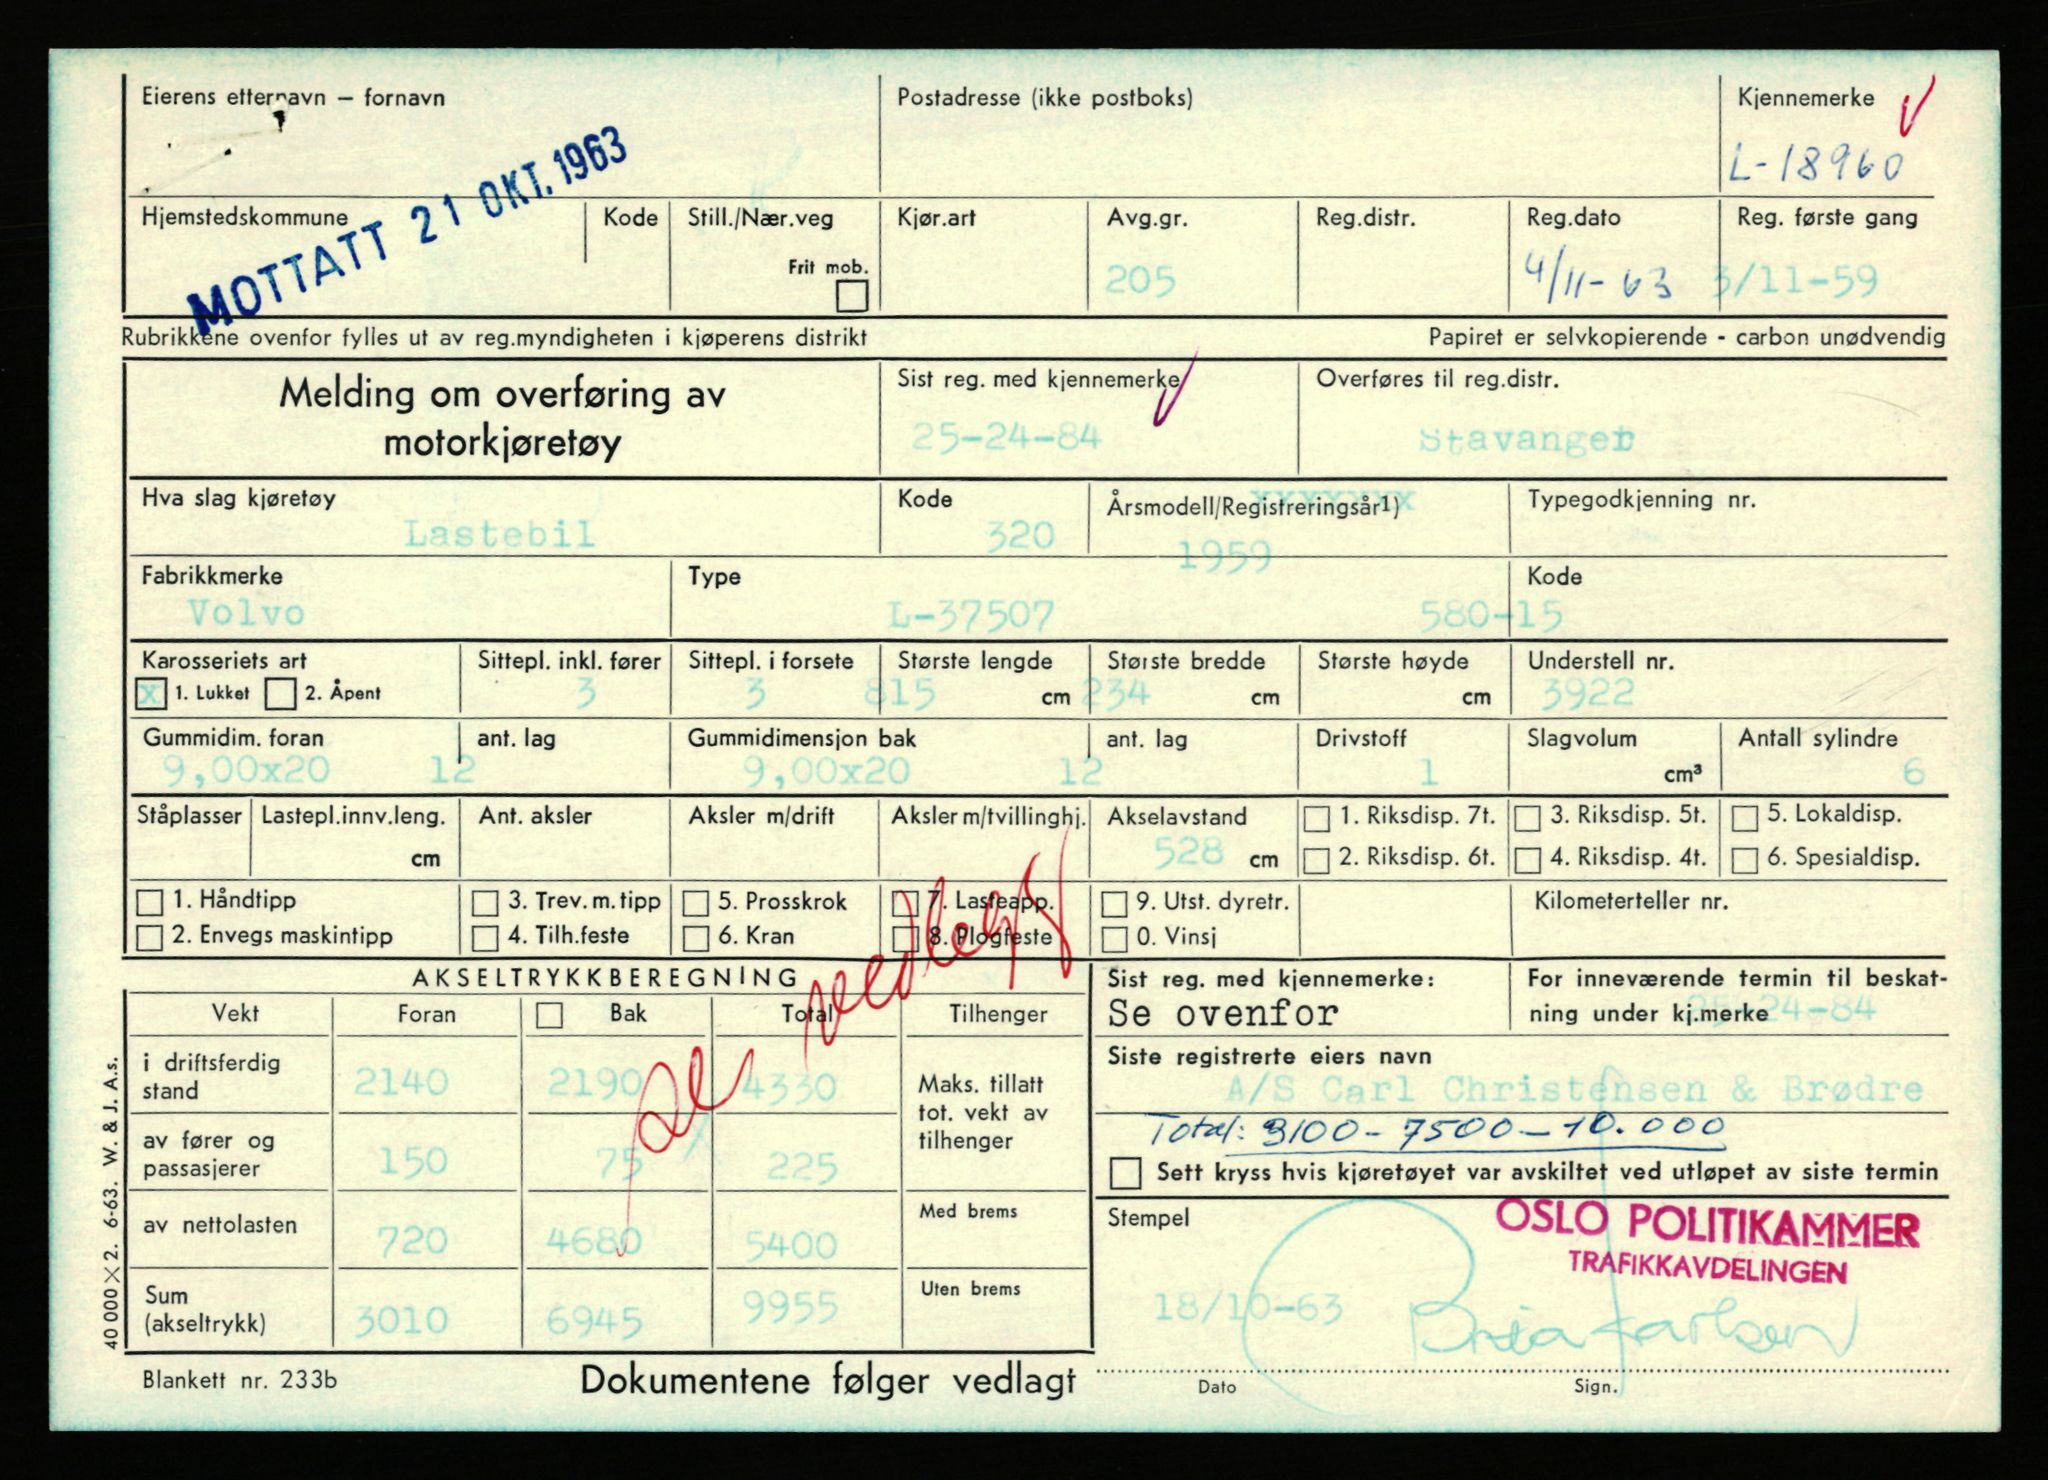 Eierens etternavn – fornavn
Postadresse (ikke postboks)
Kjennemerke
L-18960
MOTTATT 21 OKT. 1963
Hjemstedskommune
Kode
Still./Nær.veg
Frit mob.
Kjør.art
Avg.gr.
205
Reg.distr.
Reg.dato
4/11-63
Reg. første gang
3/11-59
Rubrikkene ovenfor fylles ut av reg.myndigheten i kjøperens distrikt
Papiret er selvkopierende - carbon unødvendig
Melding om overføring av
motorkjøretøy
Sist reg. med kjennemerke
25-24-84
Overføres til reg.distr.
Stavanger
Hva slag kjøretøy
Lastebil
Kode
320
Årsmodell/Registreringsår1)
xxxxxxx
1959
Typegodkjenning nr.
Fabrikkmerke
Volvo
Type
L-37507
Kode
580-15
Karosseriets art
x 1. Lukket 2. Åpent
Sittepl. inkl. fører
3
Sittepl. i forsete
3
Største lengde
815 cm
Største bredde
234 cm
Største høyde
cm
Understell nr.
3922
Gummidim. foran
9,00x20
ant. lag
12
Gummidimensjon bak
9,00x20
ant. lag
12
Drivstoff
1
Slagvolum
cm³
Antall sylindre
6
Ståplasser
Lastepl.innv.leng.
cm
Ant. aksler
Aksler m/drift
Aksler m/tvillinghj.
Akselavstand
528 cm
1. Riksdisp. 7t.
2. Riksdisp. 6t.
3. Riksdisp. 5t.
4. Riksdisp. 4t.
5. Lokaldisp.
6. Spesialdisp.
1. Håndtipp
2. Envegs maskintipp
3. Trev. m. tipp
4. Tilh.feste
5. Prosskrok
6. Kran
7. Lasteapp.
8. Plogfeste
9. Utst. dyretr.
0. Vinsj
Kilometerteller nr.
se vedlegg
AKSELTRYKKBEREGNING
Vekt Foran Bak Total Tilhenger
i driftsferdig
stand
2140 2190 4330
Maks. tillatt
tot. vekt av
tilhenger
av fører og
passasjerer
150 75 225
av nettolasten
720 4680 5400
Med brems
Sum
(akseltrykk)
3010 6945 9955
Uten brems
Sist reg. med kjennemerke:
Se ovenfor
For inneværende termin til beskat-
ning under kj.merke
25-24-84
Siste registrerte eiers navn
A/S Carl Christensen & Brødre
Total: 3100-7500-10.000
Sett kryss hvis kjøretøyet var avskiltet ved utløpet av siste termin
Stempel
OSLO POLITIKAMMER
TRAFIKKAVDELINGEN
18/10-63
Dato
Sign.
40 000 × 2. 6-63. W. & J. A.s.
Blankett nr. 233b
Dokumentene følger vedlagt